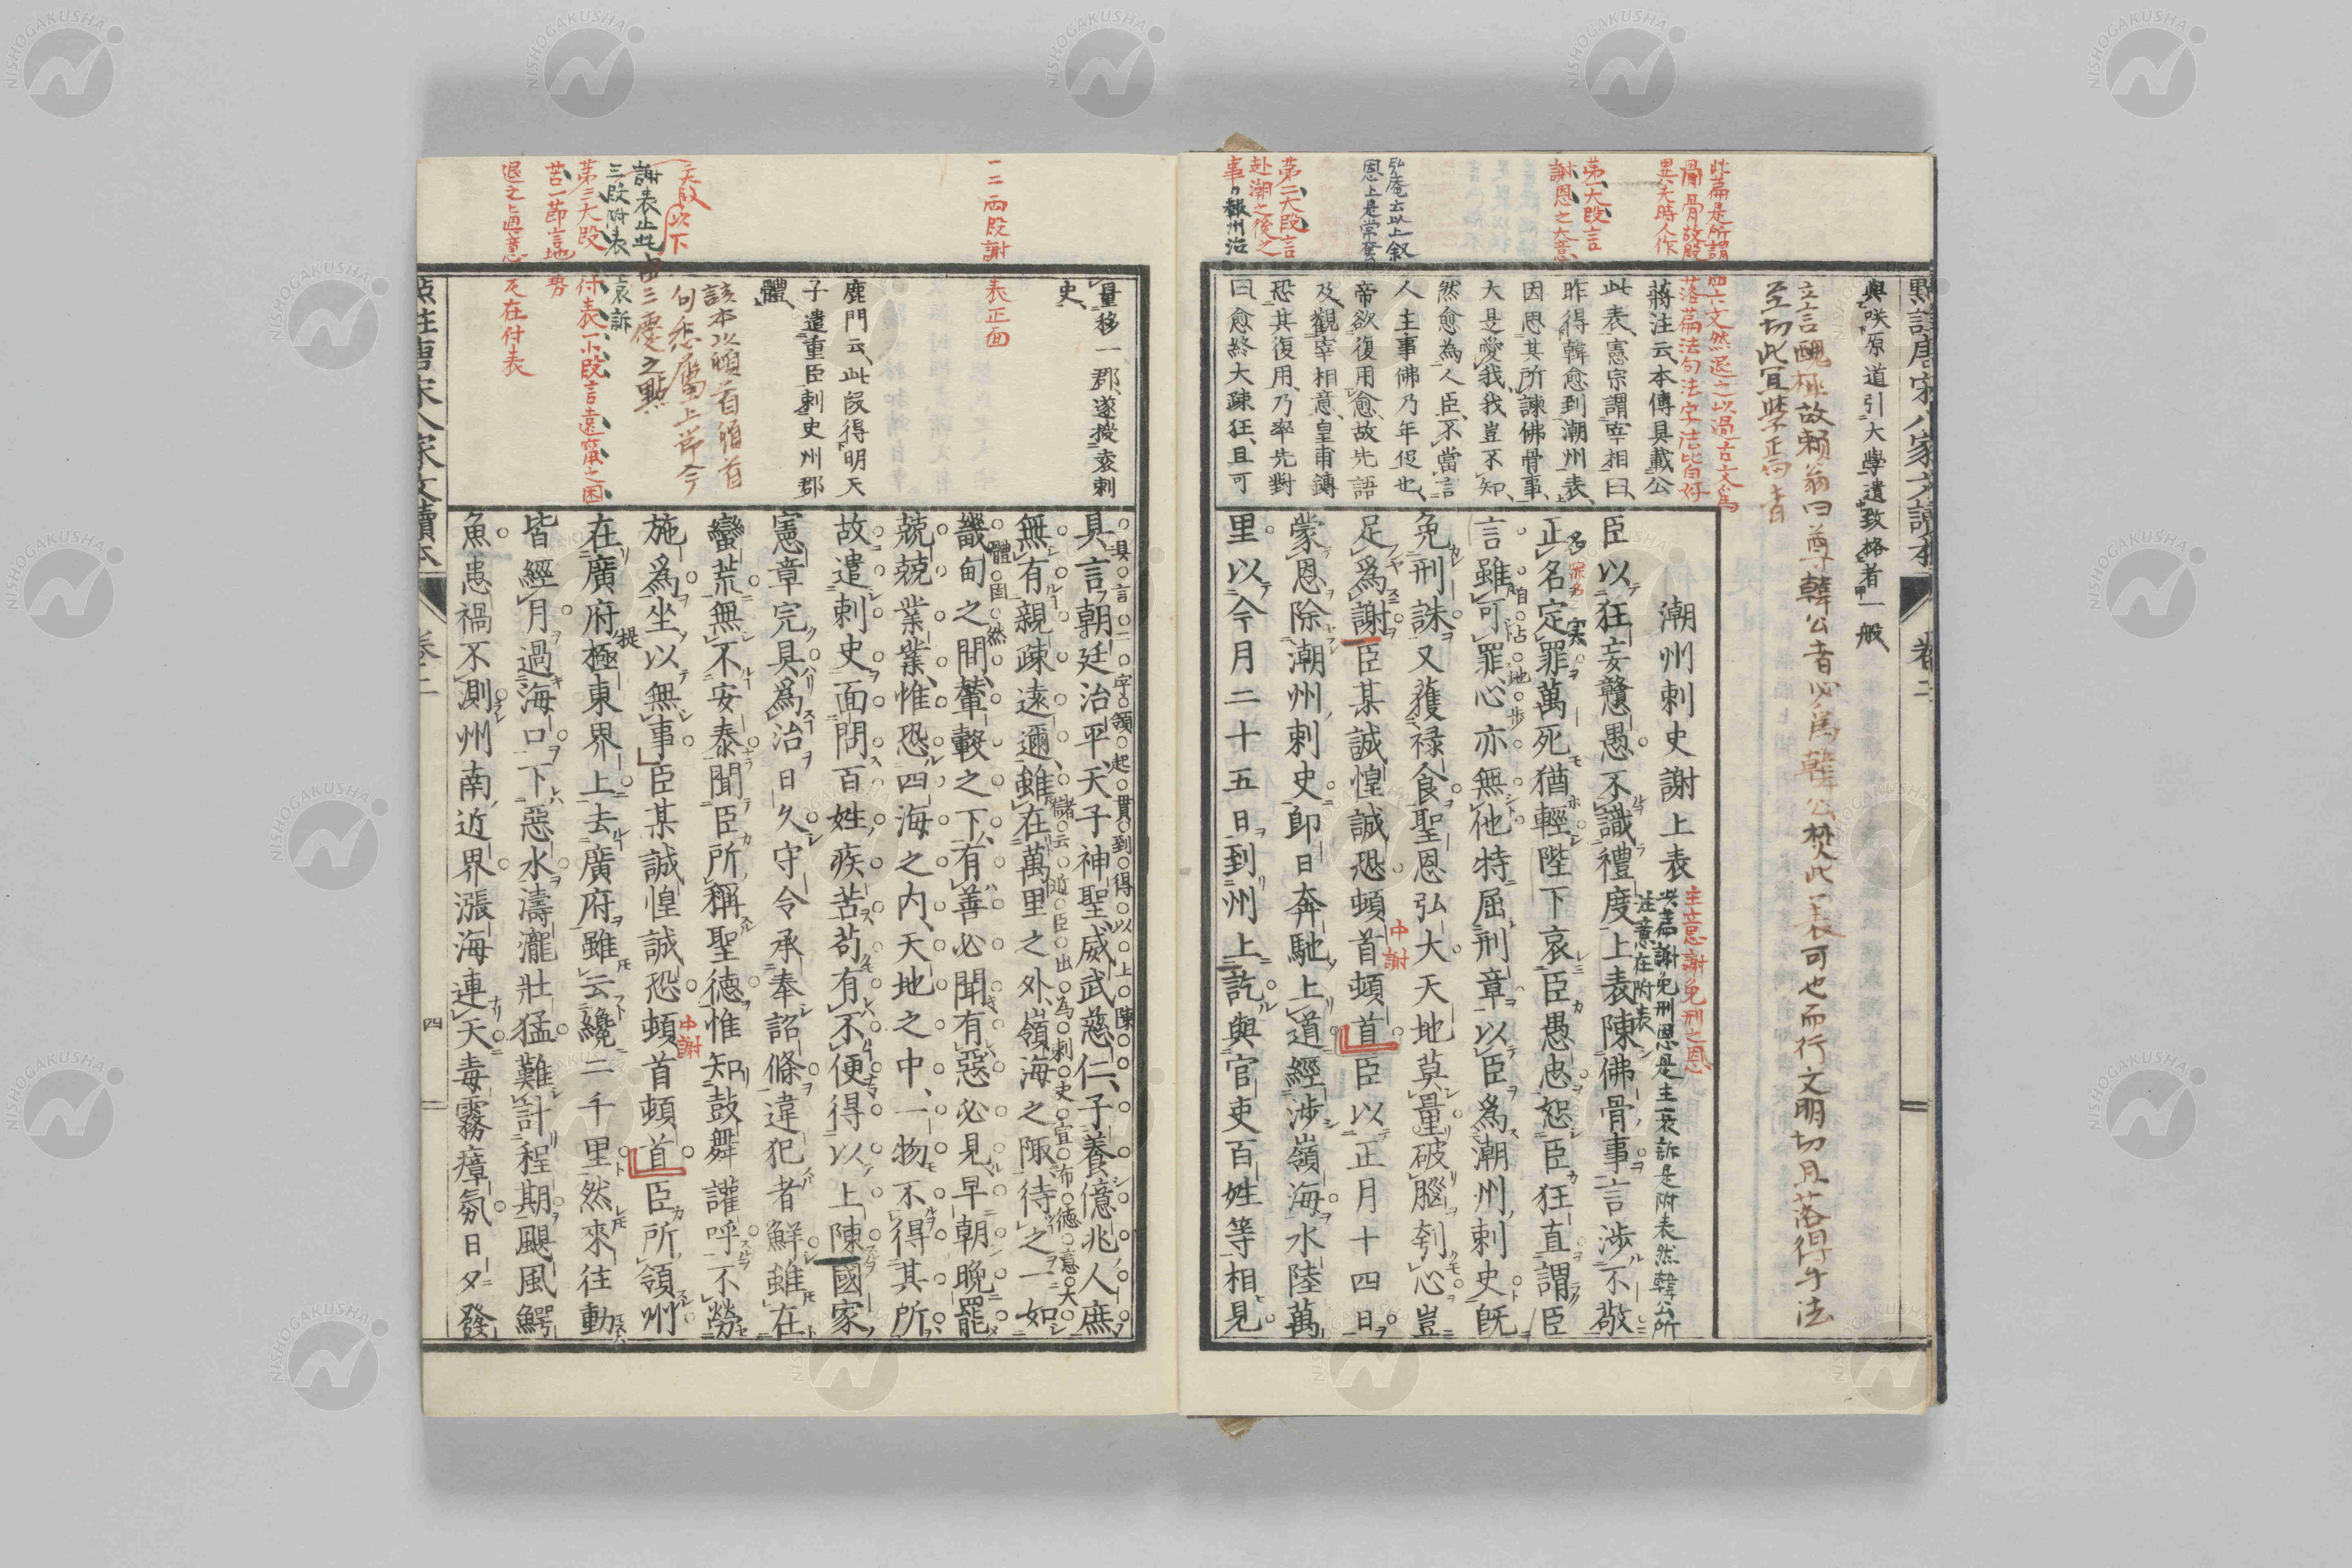 點註唐宋八家文讀本 卷二
與咲原道引大學遺致格者一般
立言醜械故賴翁曰尊韓公者必爲韓公焚此表可也而行文明切且落得午法
至切此宜學正向者
此篇是所謂四六文然退之以過古文爲
異夫時人作
蔣注云本傳具載公
此表憲宗謂宰相曰
昨得韓愈到潮州表
因思其所諫佛骨事
大是愛我我豈不知
然愈為人臣不當言
人主事佛乃年促也
帝欲復用愈故先語
及觀宰相意皇甫鏄
恐其復用乃率先對
曰愈終大疎狂且可
第一大段言
謝恩之大意
弘庵云以上叙
恩上是常套
第二大段言
赴潮之後之
事報州治
潮州刺史謝上表
主意謝免刑之恩
共言謝免刑恩是主哀訴是附表然韓公所
注意在附表
臣以狂妄戇愚不識禮度上表陳佛骨事言涉不敬
正名定罪萬死猶輕陛下哀臣愚忠恕臣狂直謂臣
言雖可罪心亦無他特屈刑章以臣爲潮州刺史既
免刑誅又蒦祿食聖恩弘大天地莫量破腦刳心豈
足爲謝臣某誠惶誠恐頓首頓首臣以正月十四日
中謝
蒙恩除潮州刺史即日奔馳上道經涉嶺海水陸萬
里以今月二十五日到州上訖與官吏百姓等相見
量移一郡遂授袁刺
史
一二兩段謝表正面
鹿門云此段得明天
子遣重臣刺史州郡
體
具言二字領起貫到得以上陳
具言朝廷治平天子神聖威武慈仁子養億兆人庶
無有親疎遠邇雖在萬里之外嶺海之陬待之一如
儲云道臣出為刺史宣布德意大
體固然
畿甸之間輦轂之下有善必聞有惡必見早朝晚罷
兢兢業業惟恐四海之內天地之中一物不得其所
故遣刺史面問百姓疾苦苟有不便得以上陳國家
憲章完具爲治日久守令承奉詔條違犯者鮮雖在
蠻荒無不安泰聞臣所稱聖德惟知鼓舞讙呼不勞
施爲坐以無事臣某誠惶誠恐頓首頓首臣所領州
中謝
在廣府極東界上去廣府雖云纔二千里然來往動
皆經月過海口下惡水濤瀧壯猛難計程期颶風鰐
魚患禍不測州南近界漲海連天毒霧瘴氛日夕發
該本以頓首頓首
謝表止此
三段附表哀訴
第三大段付表一小段言遠竄之困
苦一節言地勢
退之之真意反在付表
點註唐宋八家文讀本 卷二 四